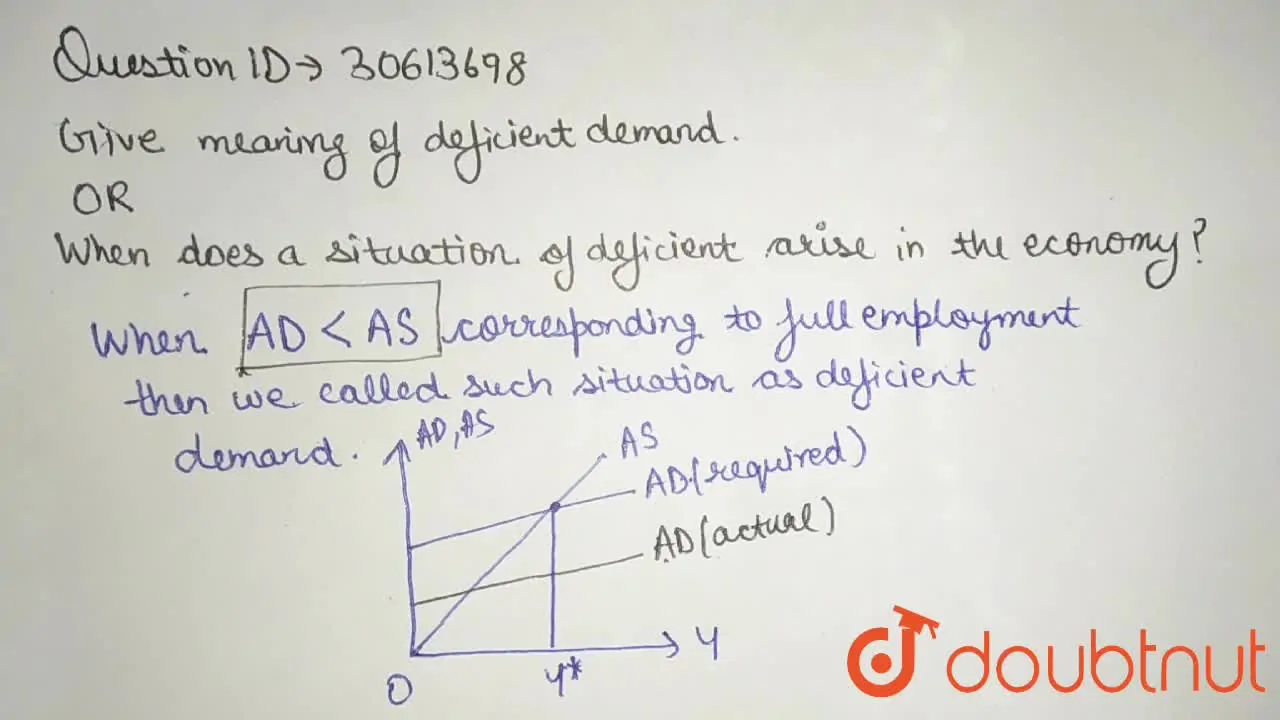 Question ID → 30613698
Give meaning of deficient demand.
OR
When does a situation of deficient arise in the economy?
When AD < AS corresponding to full employment
then we called such situation as deficient
demand.
AD, AS
AS
AD (required)
AD (actual)
O
Y*
Y
doubtnut